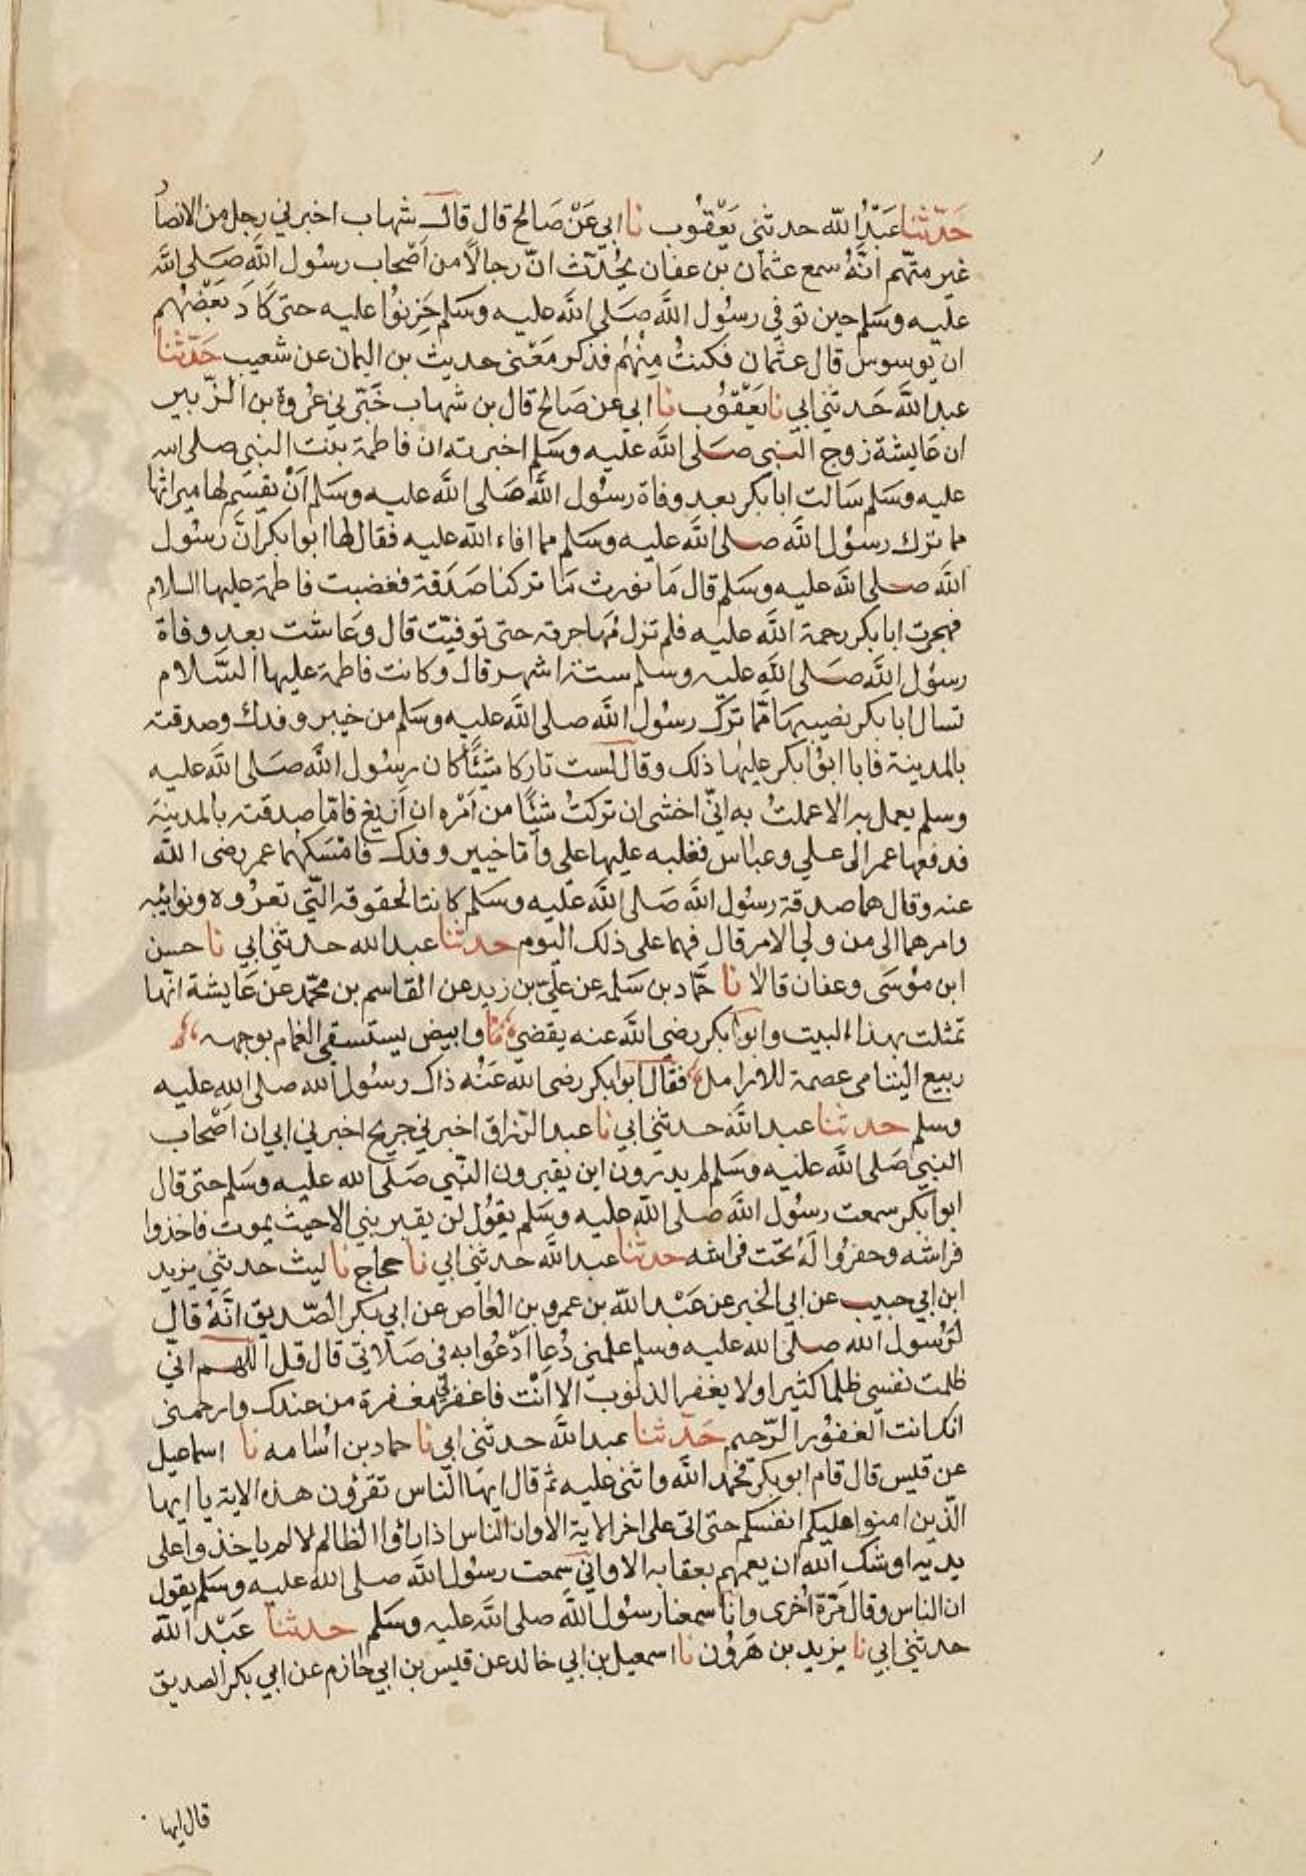 حَدّثنا عَبْدُ الله حدثني يَعْقوُب نا ابي عَنْ صَالح قال قال شهاب اخبرني رجل من الانصا
غير متهم انَّهُ سمع عثمان بن عفان يُحدّث انّ رجالًا من اَصْحاب رسُول الله صَلى الله
عليه وسَلم حين توفي رسُول الله صَلى الله عليه وسَلم حَزِنوُا عليه حتى كَادَ بَعْضهُم
ان يوسوس قال عثمان فكنتُ مِنهُم فذكر مَعْنى حديث بن اليمان عن شعيب حَدّثنا
عبد الله حَدثني ابي نا يَعْقوُب نا ابي عن صَالح قال بن شهاب خَبّرني عُروة بن الزّبير
ان عَايشة زوج النبي صَلى الله عليه وسَلم اخبرته ان فاطمة بنت النبي صلى الله
عليه وسَلم سَالت ابا بكر بعد وفاة رسُول الله صَلى الله عليه وسَلم اَنْ يقسِم لها ميراثها
مما ترك رسُول الله صلى الله عليه وسَلم مما افاء الله عليه فقال لها ابوا بكر انَّ رسُول
الله صلى الله عليه وسَلم قال مَا نورث مَا تركنا صَدَقة فغضبت فاطمة عليها السلام
فهجرت ابا بكر رحمة الله عليه فلم تزل مُهاجرته حتى توفيّت قال وعَاشت بعد وفاة
رسُول الله صَلى الله عليه وسلم ستة اشهر قال وكانت فاطمة عليها السَّلام
تسال ابا بكر نصيبهَا مّما تركَ رسُول الله صلى الله عليه وسَلم من خيبر وفدك وصدقته
بالمدينة فابا ابوُا بكر عليها ذلك وقال لست تاركا شيئًا كان رسُول الله صَلى الله عليه
وسلم يعمل به الا عملتُ به انيّ اخشى ان تركتُ شيئًا من اَمْره ان اَزيغ فامّا صدقته بالمدينة
فدفعها عمر الى علي وعباس فغلبه عليها علي وامّا خيبر وفدك فامْسَكهُما عمر رضي الله
عنه وقال هما صدقة رسُول الله صَلى الله عليه وسَلم كانتا لحقوقه التّي تعرُوه ونوائبه
وامرهما الى من ولي الامر قال فهما على ذلك اليوم حدثنا عبد الله حدثني ابي نا حسن
ابن مُوسَى وعفان قالا نا حمَّاد بن سَلمه عن عليّ بن زيد عن القاسم بن محمّد عن عَايشة انّها
تمثلت بهذا البيت وابوا بكر رضي الله عنه يقضي وابيض يستسقى الغمام بوجهه
ربيع اليتامى عصمة للارامل فقال ابوا بكر رضي الله عَنْه ذاك رسُول الله صلى الله عليه
وسلم حدثنا عبد الله حدثني ابي نا عبد الرّزاق اخبرني جريح اخبرني ابي ان اصْحاب
النبي صَلى الله عليه وسَلم لم يدرون اين يقبرون النّبي صَلى الله عليه وسَلم حتى قال
ابوا بكر سمعت رسُول الله صَلى الله عليه وسَلم يقوُل لن يقبر نبي الا حيث يموت فاخذوا
فراشه وحفرُوا لَهُ تحت فراشه حدثنا عبد الله حدثني ابي نا حجاج نا ليث حدثني يزيد
ابن ابي حبيب عن ابي الخير عن عَبْد الله بن عمرو بن العاص عن ابي بكر الصّديق انَّهُ قال
لرَسُول الله صلى الله عليه وسلم علمني دُعاا اَدْعُوا به في صَلاتي قال قل اللهم انّي
ظلمت نفسي ظلما كثيرا ولا يغفر الذنوب الا اَنْت فاغفر لي مغفرة من عندك وارحمني
انك انت الغفوُر الرّحيم حَدّثنا عبد الله حدثني ابي نا حماد بن اسُامه نا اسماعيل
عن قيس قال قام ابو بكر فحمد الله واثنى عليه ثم قال ايهَا الناس تقرؤن هذه الاية يا ايها
الّذين امنوا عليكم انفسكم حتى اتى على اخر الاية الا وان الناس اذا راوا الظالم لا لم ياخذوا على
يديه اوشك الله ان يعمهم بعقابه الا واني سمعت رسُول الله صلى الله عليه وسَلم يقول
ان الناس وقال مَرّة اُخرى وانا سمعنا رسُول الله صلى الله عليه وسَلم حدثنا عَبْد الله
حدثني ابي نا يزيد بن هَروُن نا اسمعيل بن ابي خالد عن قيس بن ابي حازم عن ابي بكر الصديق
قال ايها